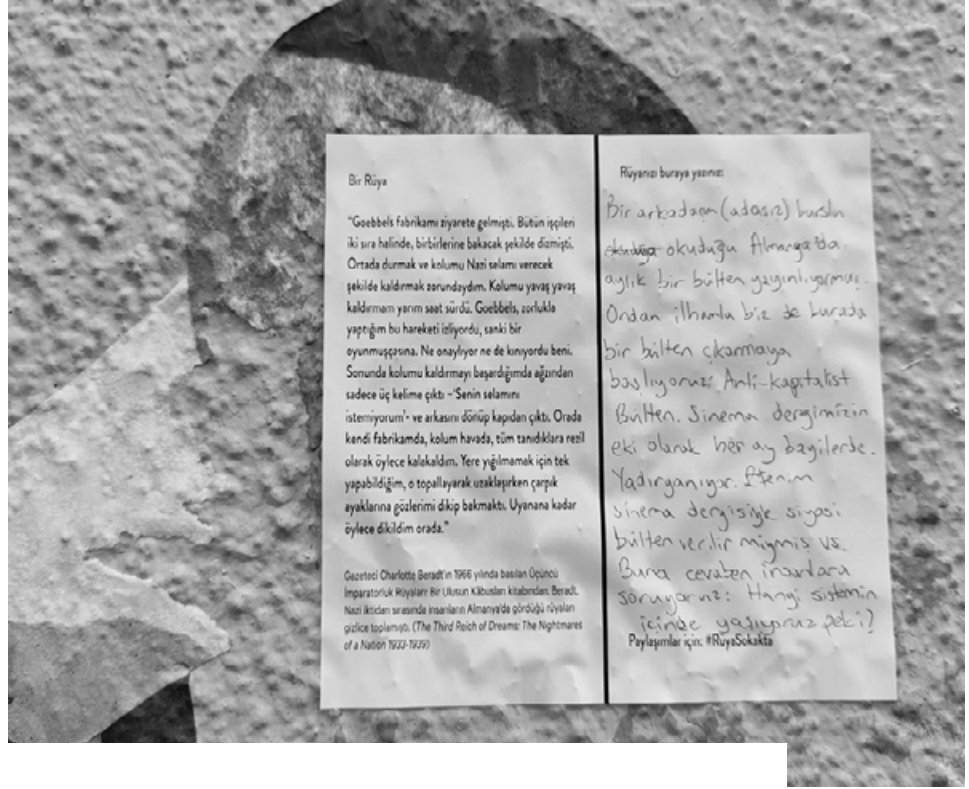 Bir Rüya
"Goebbels fabrikamı ziyarete gelmişti. Bütün işçileri
iki sıra halinde, birbirlerine bakacak şekilde dizmişti.
Ortada durmak ve kolumu Nazi selamı verecek
şekilde kaldırmak zorundaydım. Kolumu yavaş yavaş
kaldırmam yarım saat sürdü. Goebbels, zorlukla
yaptığım bu hareketi izliyordu, sanki bir
oyunmuşçasına. Ne onaylıyor ne de kınıyordu beni.
Sonunda kolumu kaldırmayı başardığımda ağzından
sadece üç kelime çıktı –'Senin selamını
istemiyorum'- ve arkasını dönüp kapıdan çıktı. Orada
kendi fabrikamda, kolum havada, tüm tanıdıklara rezil
olarak öylece kalakaldım. Yere yığılmamak için tek
yapabildiğim, o topallayarak uzaklaşırken çarpık
ayaklarına gözlerimi dikip bakmaktı. Uyanana kadar
öylece dikildim orada."
Gazeteci Charlotte Beradt'ın 1966 yılında basılan Üçüncü
İmparatorluk Rüyaları: Bir Ulusun Kâbusları kitabından. Beradt,
Nazi iktidarı sırasında insanların Almanya'da gördüğü rüyaları
gizlice toplamıştı. (The Third Reich of Dreams: The Nightmares
of a Nation 1933-1939)
Rüyanızı buraya yazınız:
Bir arkadaşım (adasız) burslu
okuduğu Almanya'da
aylık bir bülten yayınlıyormuş.
Ondan ilhamla biz de burada
bir bülten çıkarmaya
başlıyoruz: Anti-kapitalist
Bülten. Sinema dergimizin
eki olarak her ay bayilerde.
Yadırganıyor.
sinema dergisiyle siyasi
bülten verilir miymiş vs.
Buna cevaben insanlara
soruyoruz: Hangi sistemin
içinde yaşıyoruz peki?
Paylaşımlar için: #RüyaSokakta